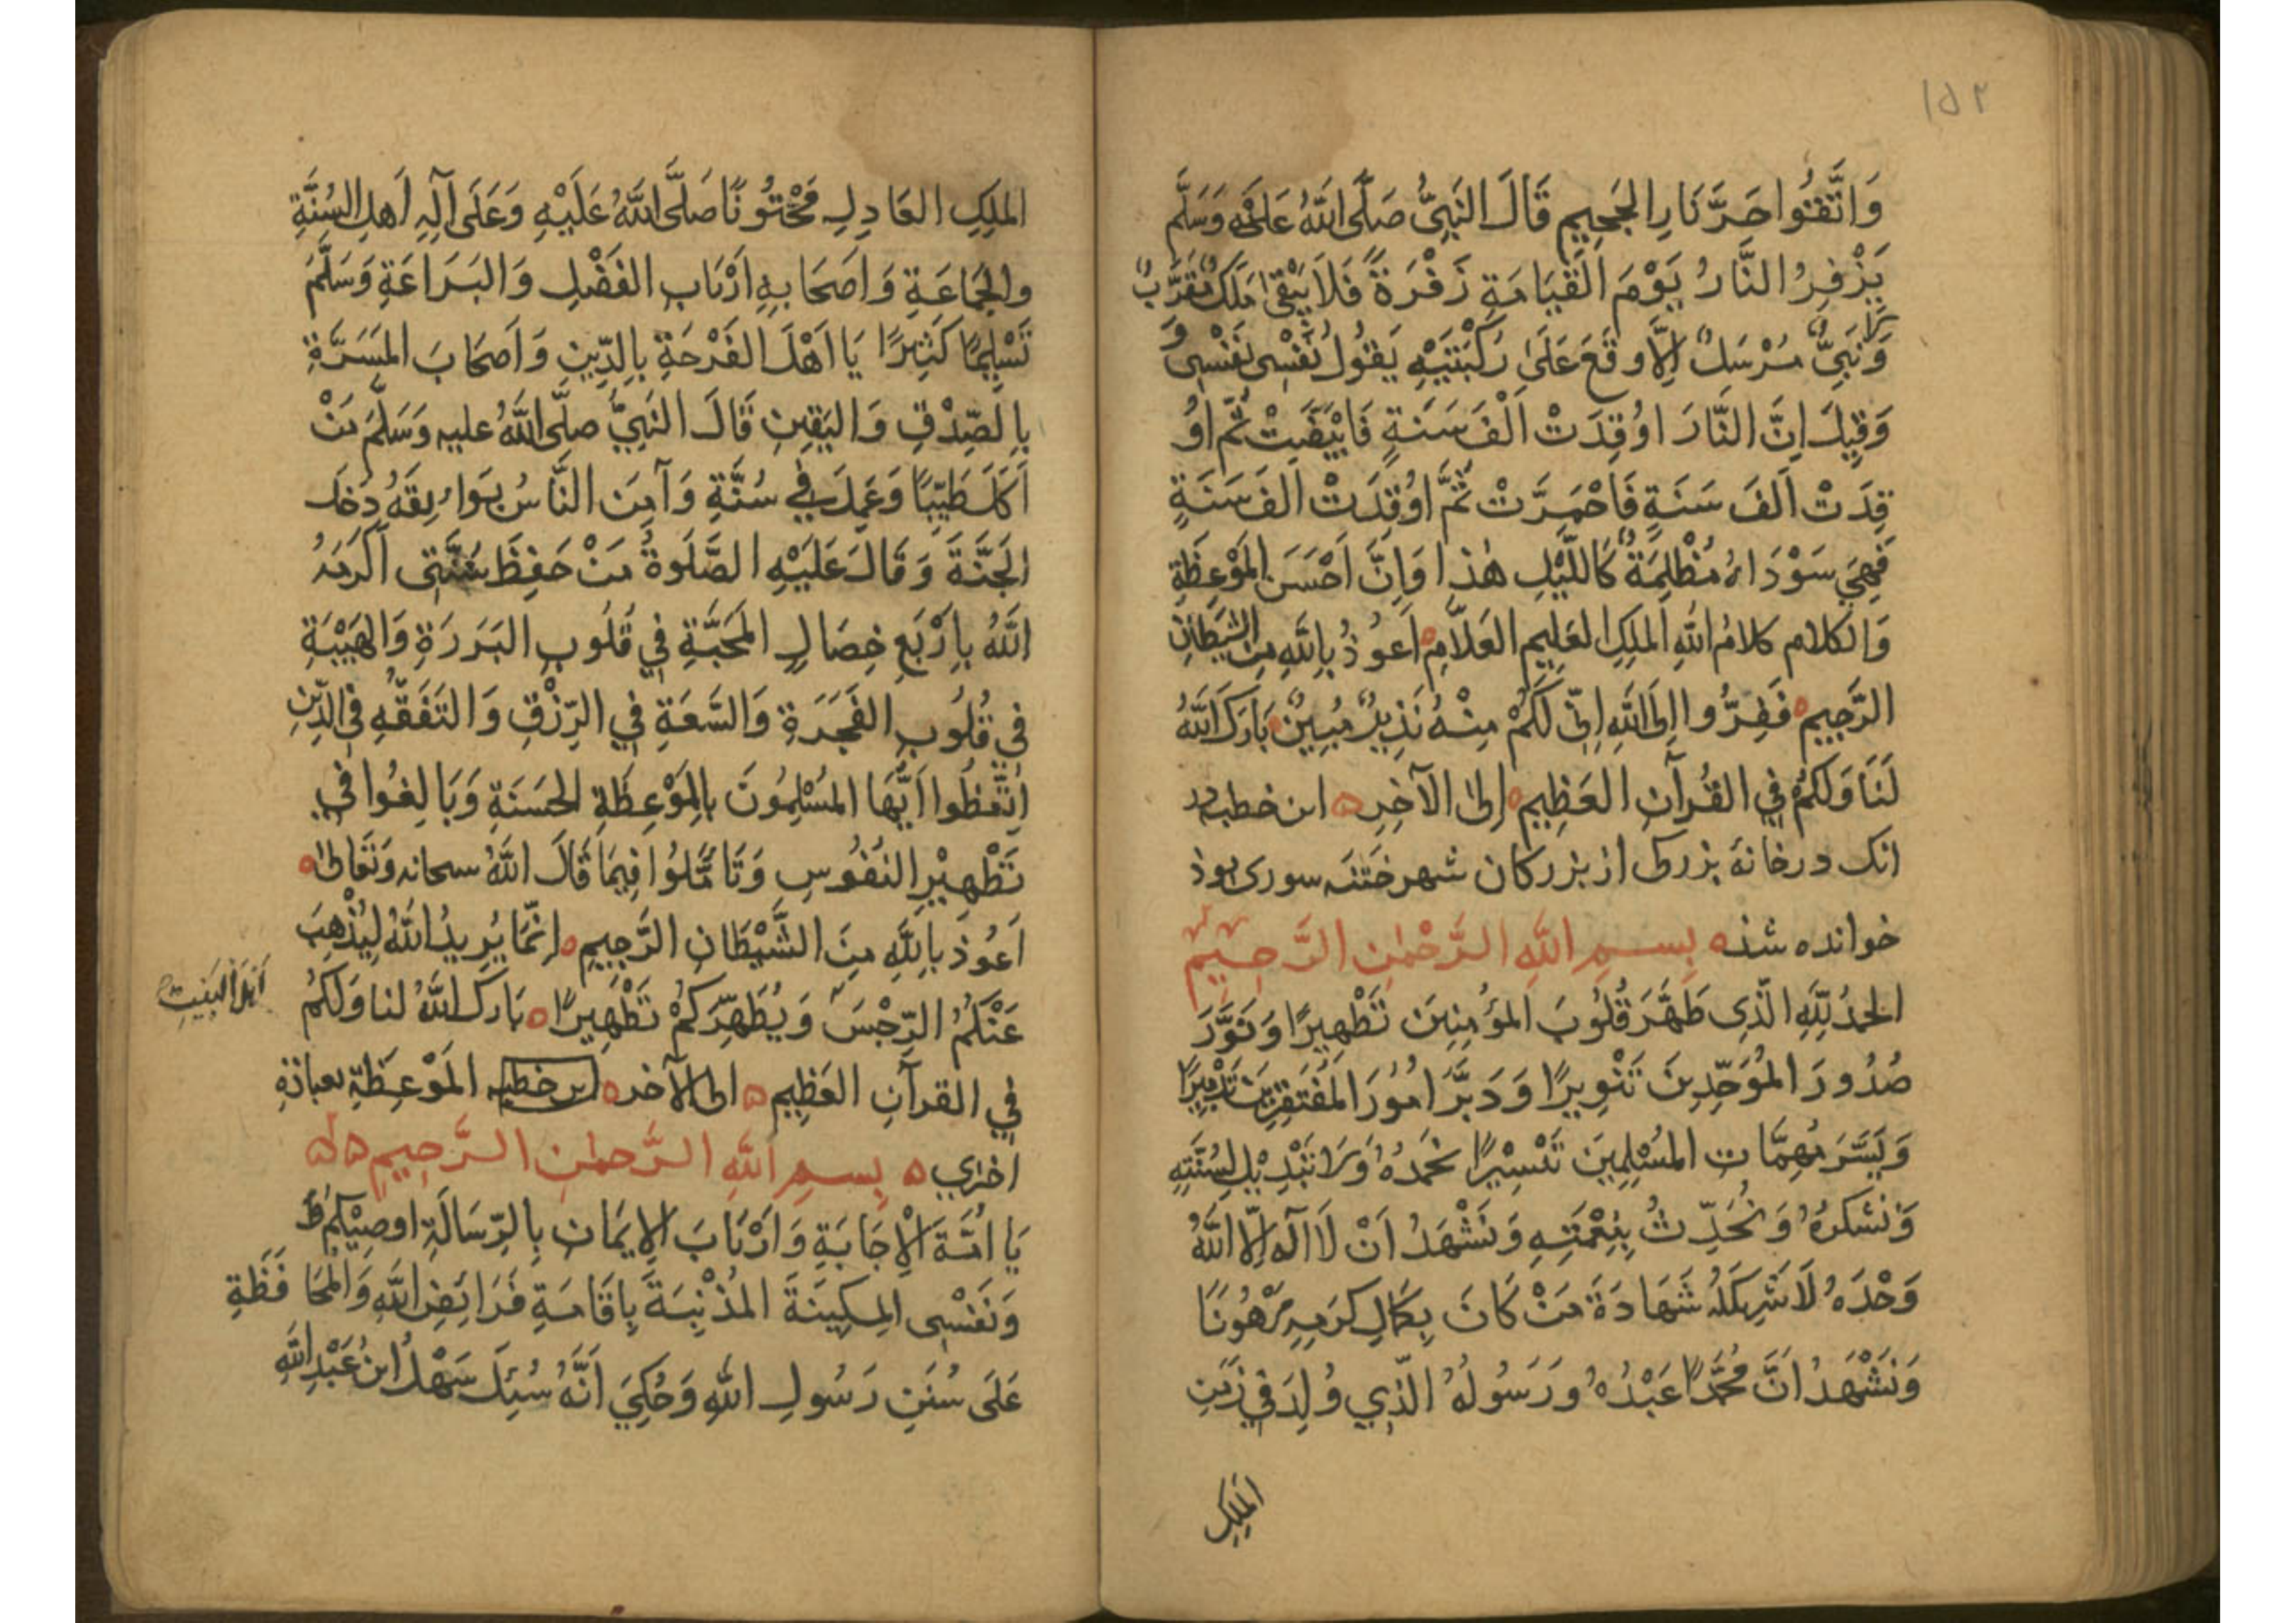 ١٥٢
وَاتَّقُوا حَرَّ نَارِ الجَحِيمِ قَالَ النَّبِيُّ صَلَّى اللّٰهُ عَلَيْهِ وَسَلَّمَ
يَزْفِرُ النَّارُ يَوْمَ القِيَامَةِ زَفْرَةً فَلَا يَبْقَى مَلَكٌ مُقَرَّبٌ
وَلَا نَبِيٌّ مُرْسَلٌ اِلَّا وقَعَ عَلَى رُكْبَتَيْهِ يَقُولُ نَفْسِى نَفْسِى
وَقِيلَ اِنَّ النَّارَ اوُقِدَتْ اَلْفَ سَنَةٍ فَابْيَضَّتْ ثُمَّ اوُ
قِدَتْ اَلفَ سَنَةٍ فَاحْمَرَّتْ ثُمَّ اوُقِدَتْ الفَ سَنَةٍ
فَهِيَ سَوْدَاءُ مُظْلِمَةٌ كَاللَّيْلِ هٰذا وَاِنَّ اَحْسَنَ المَوْعِظَةِ
وَالكلامِ كلامُ اللّٰهِ المَلِكِ العَلِيمِ العَلَّامِ اَعوُذُ بِاللّٰهِ مِنَ الشَّيطَانِ
الرَّجِيمِ فَفِرُّوا اِلَى اللّٰهِ اِنِّى لَكُمْ مِنْهُ نَذِيرٌ مُبِينٌ بَارَكَ اللّٰهُ
لَنَا وَلَكُمْ فِي القُرآنِ العَظِيمِ اِلىٰ الآخِرِ اين خطبه در
انک در خانهٔ بزرکى از بزرکان شهر خَتنَه سورى بوذ
خوانده شذ بِسمِ اللّٰهِ الرَّحْمٰنِ الرَّحِيمِ
الحَمدُ لِلّٰهِ الَّذِى طَهَّرَ قُلُوبَ المؤُمِنِينَ تَطْهِيرًا وَنَوَّرَ
صُدُورَ المُوَحِّدِينَ تَنْوِيرًا وَدَبَّرَ امُوُرَ المُفْتَقِرِينَ تَدْبِيرًا
وَيَسَّرَ مُهِمَّاتِ المُسْلِمِينَ تَيْسِيْرًا نَحْمَدُهُ وَلَا تَبْدِيْلَ لِسُنَّتِهِ
وَنَشكرُهُ وَنُحَدِّثُ بِنِعْمَتِهِ وَنَشْهَدُ اَنْ لَا اله اِلّا اللّٰهُ
وَحْدَهُ لَا شَرِيكَ لَهُ شَهَادَةَ مَنْ كَانَ بِكمَالِ كَرَمِهِ مَرْهُونًا
وَنَشْهَدُ اَنَّ مُحَمَّدًا عَبْدُهُ ورَسُولُهُ الَّذِي وُلِدَ فِي زَمَنِ
المَلِكِ
المَلِكِ العَادِلِ مَخْتُونًا صَلَّى اللّٰهُ عَلَيْهِ وَعَلَى آلِهِ اَهلِ السُنَّةِ
والجَمَاعَةِ وَاَصحَابِهِ اَرْبَابِ الفَضْلِ وَالبَرَاعَةِ وَسَلَّمَ
تَسْلِيمًا كَثِيرًا يَا اَهْلَ الفَرْحَةِ بِالدِّينِ وَاَصحَابَ المَسَرَّةِ
بِالصِّدْقِ وَاليَقِينِ قَالَ النَبِيُّ صلَّى اللّٰهُ عليه وَسَلَّمَ مَنْ
اَكَلَ طَيِّبًا وَعَمِلَ فِي سُنَّةٍ وَآمِنَ النَّاسُ بَوَايِقَهُ دَخلَ
الجَنَّةَ وَقَالَ عَلَيْهِ الصَّلَوةُ مَنْ حَفِظَ سُنَّتِى اَكرَمَهُ
اللّٰهُ بِاَرْبَعِ خِصَالٍ المَحَبَّةِ فِي قُلُوبِ البَرَرَةِ وَالهَيْبَةِ
فِي قُلُوبِ الفَجَرَةِ وَالسَّعَةِ فِي الرِّزْقِ وَالتَفَقُّهِ فِي الدِّينِ
اِتَّعِظُوا اَيُّهَا المُسْلِمُونَ بِالمَوْعِظَةِ الحَسَنَةِ وَبَالِغُوا فِي
تَطْهِيْرِ النُفُوسِ وَتَامَّلُوا فِيمَا قَالَ اللّٰهُ سبحانه وَتَعَالىٰ
اَعوُذُ بِاللّٰهِ مِنَ الشَّيْطَانِ الرَّجِيمِ اِنَّمَا يُرِيدُ اللّٰهُ لِيُذْهِبَ
عَنْكُمُ الرِّجْسَ وَيُطَهِّرَكُمْ تَطْهِيرًا بَارَكَ اللّٰهُ لنا وَلَكُمْ
اَهْلَ البَيْتِ
فِي القرآنِ العَظِيمِ الى الآخر اين خطبه المَوْعِظَة بعباذة
اخرٰي بِسمِ اللّٰهِ الرَّحمٰنِ الرَّحِيمِ
يَا امَّةَ الْاِجَابَةِ وَاَرْبَابَ الاِيمَانِ بِالرِّسَالَةِ اوصِيْكُمْ
وَنَفْسِى المِسكِينَةَ المُذْنِبَةَ بِاِقَامَةِ فَرَائِضِ اللّٰهِ وَالمُحَافَظَةِ
عَلَى سُنَنِ رَسُولِ اللّٰهِ وَحُكِيَ اَنَّهُ سُئِلَ سَهْلُ ابنُ عَبْدِ اللّٰهِ